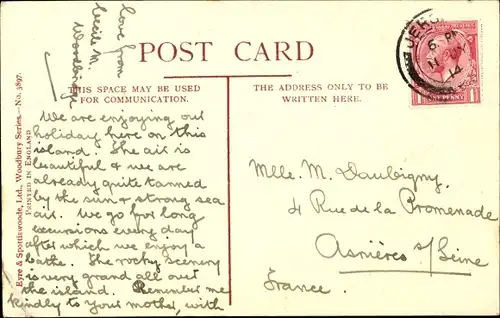 POST CARD
THIS SPACE MAY BE USED
FOR COMMUNICATION.
THE ADDRESS ONLY TO BE
WRITTEN HERE.
We are enjoying our
holiday here on this
island. The air is
beautiful & we are
already quite tanned
by the sun & strong sea
air. We go for long
excursions every day
after which we enjoy a
bathe. The rocky scenery
is very grand all out
the island. Remember me
kindly to your mother, with
love from
Cecile M.
Woodbridge
Mlle. M. Daubigny.
4 Rue de la Promenade
Asnières s/Seine
France.
Eyre & Spottiswoode, Ltd., Woodbury Series.—No. 3897.
PRINTED IN ENGLAND
6 PM
14
1